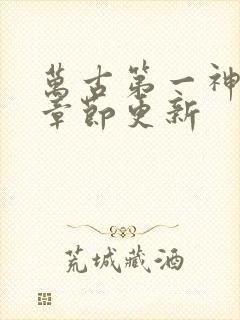 萬古第一神
章節更新
荒城藏酒